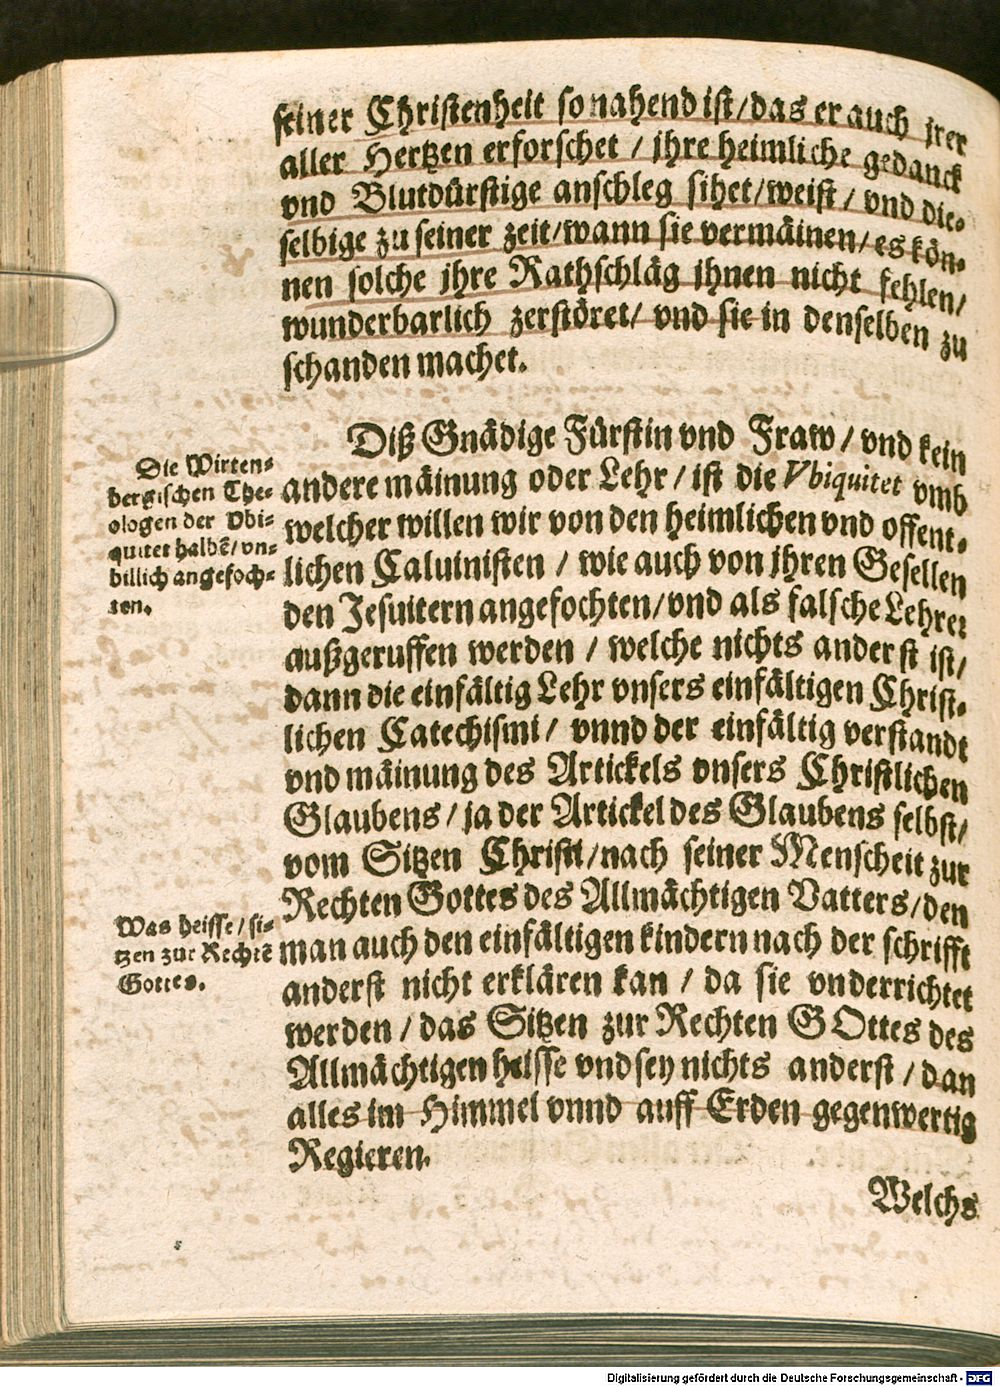 seiner Christenheit so nahend ist/das er auch jrer
aller Hertzen erforschet / jhre heimliche gedanck
vnd Blutdürstige anschleg sihet/weist / vnd die-
selbige zu seiner zeit/wann sie vermäinen/es kön-
nen solche jhre Rathschläg jhnen nicht fehlen/
wunderbarlich zerstöret/ vnd sie in denselben zu
schanden machet.
Diß Gnädige Fürstin vnd Fraw / vnd kein
andere mäinung oder Lehr / ist die Vbiquitet vmb
welcher willen wir von den heimlichen vnd offent-
lichen Caluinisten / wie auch von jhren Gesellen
den Jesuitern angefochten/vnd als falsche Lehrer
außgeruffen werden / welche nichts anderst ist/
dann die einfältig Lehr vnsers einfältigen Christ-
lichen Catechismi / vnnd der einfältig verstandt
vnd mäinung des Artickels vnsers Christlichen
Glaubens / ja der Artickel des Glaubens selbst/
vom Sitzen Christi/nach seiner Menscheit zur
Rechten Gottes des Allmächtigen Vatters/den
man auch den einfältigen kindern nach der schrifft
anderst nicht erklären kan / da sie vnderrichtet
werden / das Sitzen zur Rechten GOttes des
Allmächtigen heisse vnd sey nichts anderst / dan
alles im Himmel vnnd auff Erden gegenwertig
Regieren.
Welchs
Die Wirten-
bergischen The-
ologen der Vbi-
quitet halbē/vn-
billich angefoch-
ten.
Was heisse/si-
tzen zur Rechtē
Gottes.
Digitalisierung gefördert durch die Deutsche Forschungsgemeinschaft - DFG